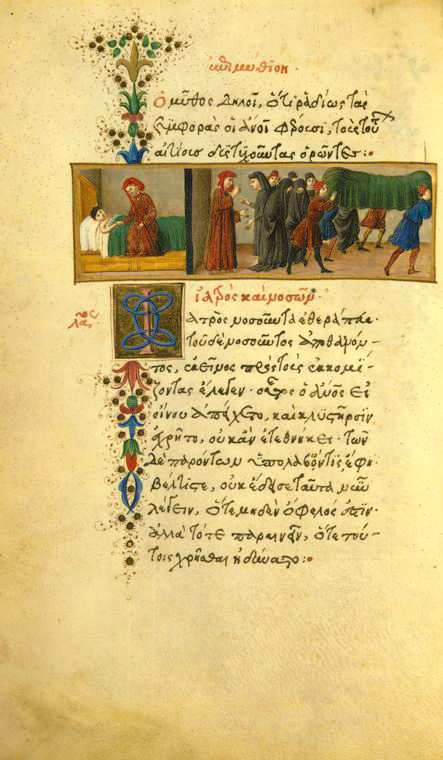 ἐπιμύθιον.
Ὁ μῦθος δηλοῖ, ὅτι ῥαδίως τὰς
συμφορὰς οἱ ἄνοι φέρουσι, τοὺς τού
αἰτίους δυστυχοῦντας ὁρῶντες:
ἰατρὸς καὶ νοσῶν.
Ἰατρὸς νοσοῦντα ἐθεράπευε·
τοῦ δὲ νοσοῦντος ἀποθανόν-
τος, ἐκεῖνος πρὸς τοὺς ἐκκομί-
ζοντας ἔλεγεν· οὗτος ὁ ἄνος εἰ
οἴνου ἀπείχετο, καὶ κλυστῆρσιν
ἐχρῆτο, οὐκ ἂν ἐτεθνήκει· τῶν
δὲ παρόντων ὑπολαβών τις ἔφη·
βέλτιστε, οὐκ ἔδει σε ταῦτα νῦν
λέγειν, ὅτε μηδὲν ὄφελός ἐστιν·
ἀλλὰ τότε παραινεῖν, ὅτε τού-
τοις χρῆσθαι ἠδύνατο: